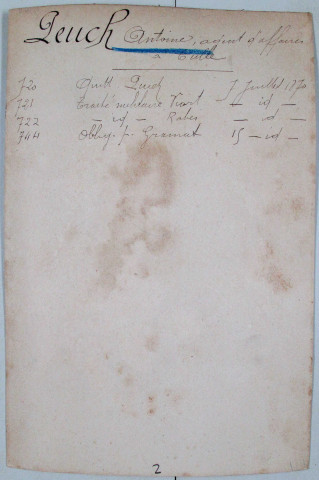 Peuch Antoine, agent d'affaires
à Tulle
720 Quitt Peuch 7 Juillet 1870
721 Traité militaire Viort — id —
722 — id — Rabès — d —
744 Oblig. p. Gramat 15 — id —
2